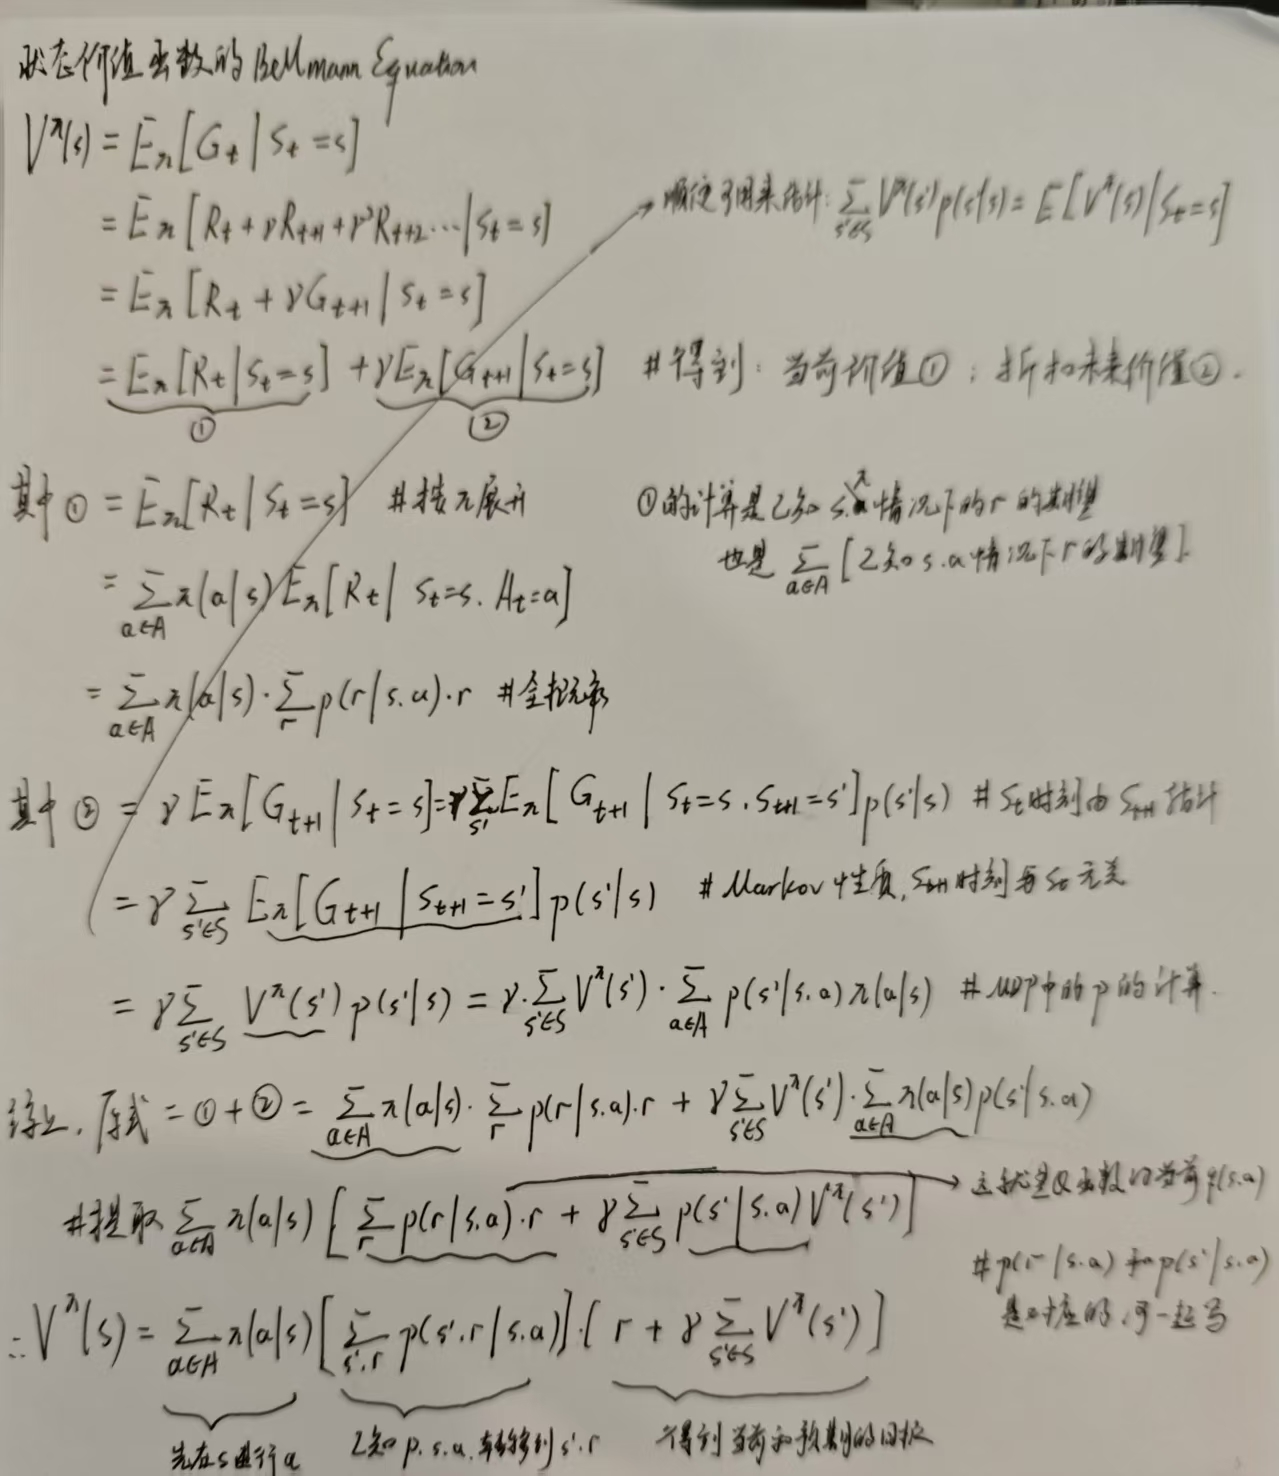 状态价值函数的 Bellmann Equation
V^π(s) = E_π[G_t | S_t = s]
= E_π[R_t + γR_{t+1} + γ²R_{t+2} ⋯ | S_t = s]
→ 顺便可用来估计: Σ_{s'∈S} V^π(s')p(s'|s) = E[V^π(s') | S_t = s]
= E_π[R_t + γG_{t+1} | S_t = s]
= E_π[R_t | S_t = s] + γE_π[G_{t+1} | S_t = s] #得到: 当前价值①; 折扣未来价值②.
① ②
其中① = E_π[R_t | S_t = s] #按π展开
①的计算是已知 s.π情况下的r的期望
也是 Σ_{a∈A} [已知 s.a情况下r的期望].
= Σ_{a∈A} π(a|s) E_π[R_t | S_t = s. A_t = a]
= Σ_{a∈A} π(a|s) · Σ_r p(r|s.a)·r #全概率
其中② = γE_π[G_{t+1} | S_t = s] = γΣ_{s'} E_π[G_{t+1} | S_t = s. S_{t+1} = s']p(s'|s) #S_t时刻由S_{t+1}估计
= γΣ_{s'∈S} E_π[G_{t+1} | S_{t+1} = s']p(s'|s) #Markov性质, S_{t+1}时刻与S_t无关
= γΣ_{s'∈S} V^π(s')p(s'|s) = γ·Σ_{s'∈S} V^π(s')·Σ_{a∈A} p(s'|s.a)π(a|s) #MDP中的p的计算.
综上, 原式 = ① + ② = Σ_{a∈A} π(a|s)·Σ_r p(r|s.a)·r + γΣ_{s'∈S} V^π(s')·Σ_{a∈A} π(a|s)p(s'|s.a)
#提取 Σ_{a∈A} π(a|s) [Σ_r p(r|s.a)·r + γΣ_{s'∈S} p(s'|s.a)V^π(s')] → 这就是Q函数的当前q(s.a)
#p(r|s.a)和p(s'|s.a)
是对应的,可一起写
∴ V^π(s) = Σ_{a∈A} π(a|s) [Σ_{s'.r} p(s'.r|s.a)]·[r + γΣ_{s'∈S} V^π(s')]
先在s进行a 已知p.s.a.转移到s'.r 得到当前和预期的回报